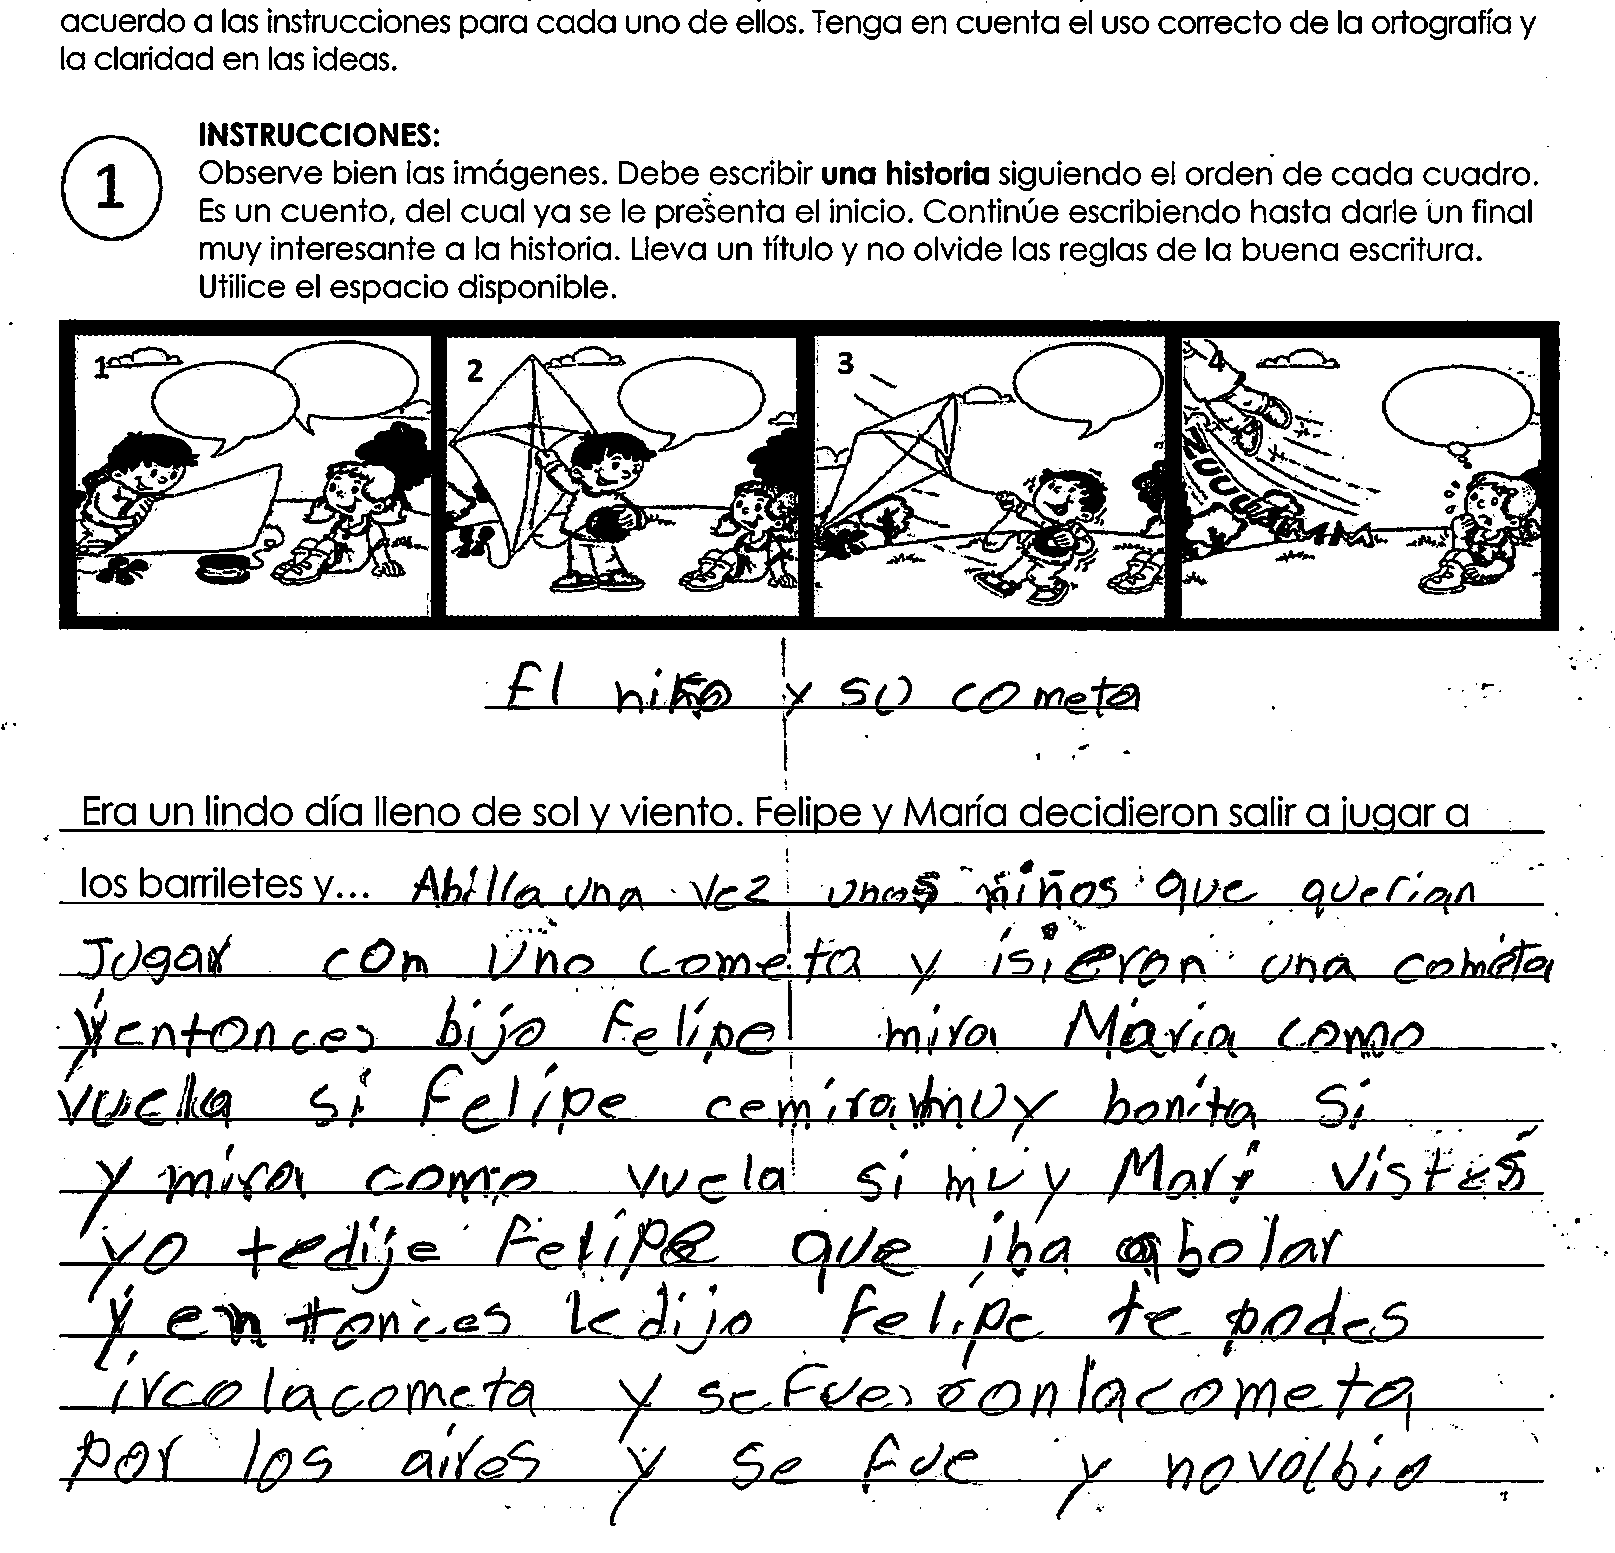 acuerdo a las instrucciones para cada uno de ellos. Tenga en cuenta el uso correcto de la ortografía y
la claridad en las ideas.
1
INSTRUCCIONES:
Observe bien las imágenes. Debe escribir una historia siguiendo el orden de cada cuadro.
Es un cuento, del cual ya se le presenta el inicio. Continúe escribiendo hasta darle un final
muy interesante a la historia. Lleva un título y no olvide las reglas de la buena escritura.
Utilice el espacio disponible.
1 2 3 4
ZUUUUU
El niño y su cometa
Era un lindo día lleno de sol y viento. Felipe y María decidieron salir a jugar a
los barriletes y... Abilla una vez unos niños que querian
Jugar con uno cometa y isieron una cometa
y entonces bijo Felipe mira Maria como
vuela si Felipe cemira muy bonita Si
y mira como vuela si muy Mari vistes
yo tedije Felipe que iba a bolar
y entonces le dijo Felipe te podes
irco lacometa y se fue conlacometa
por los aires y se fue y novolbio